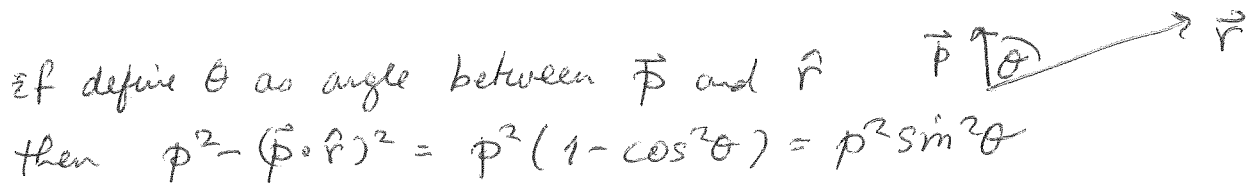 If define θ as angle between p⃗ and r̂ p⃗ θ r⃗
then p² - (p⃗ • r̂)² = p² (1 - cos²θ) = p² sin²θ